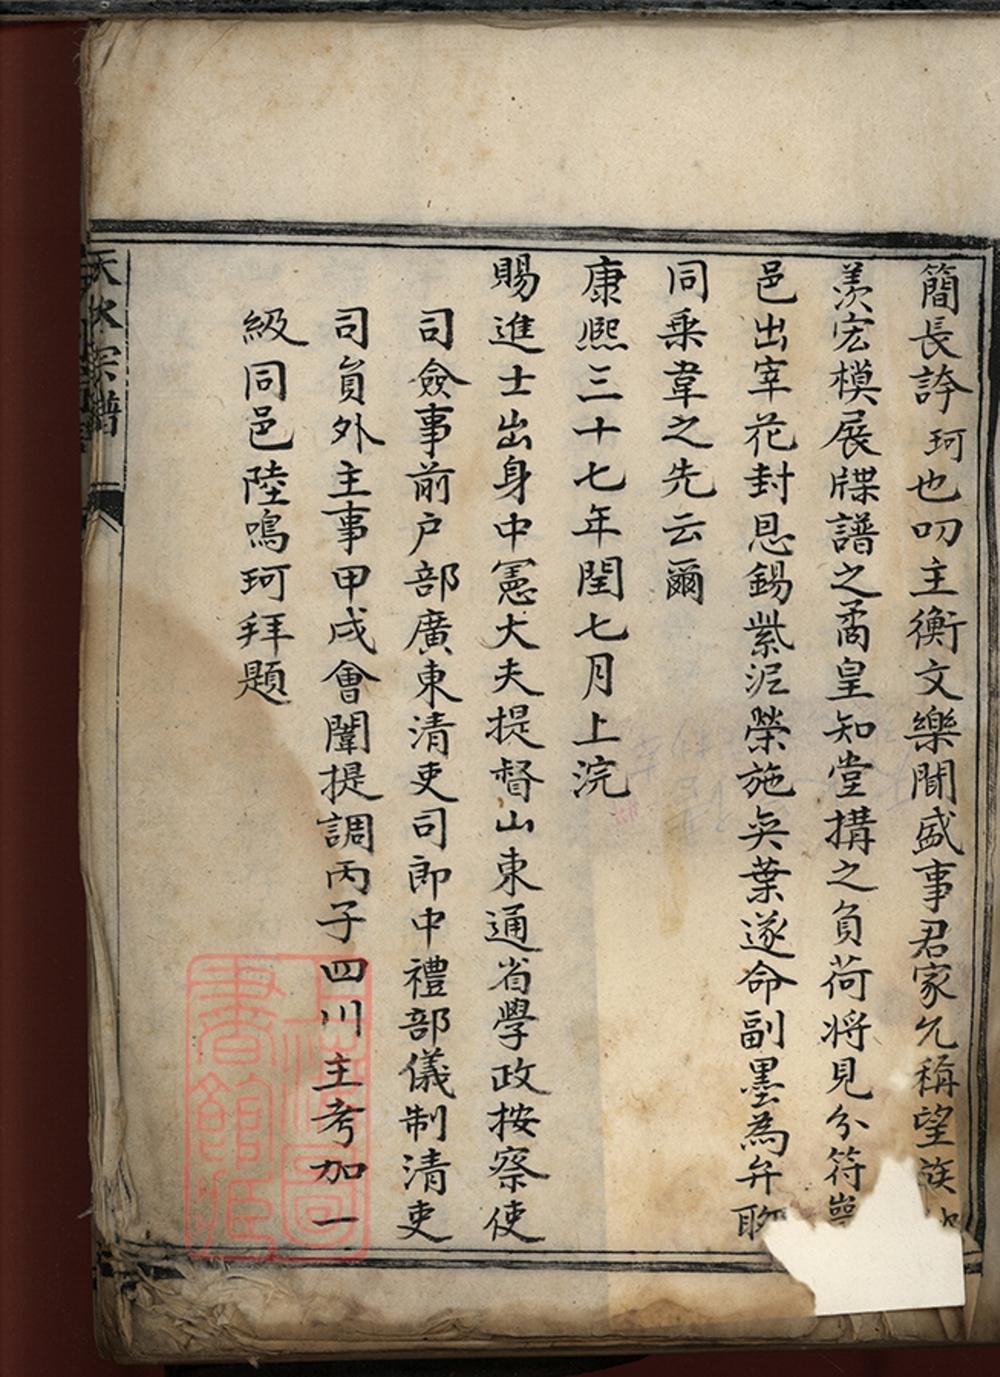 簡長誇珂也叨主衡文樂聞盛事君家允稱望族
羨宏模展牒譜之矞皇知堂搆之負荷將見分符
邑出宰花封恩錫紫泥榮施奕葉遂命副墨為弁
同乗韋之先云爾
康熈三十七年閏七月上浣
賜進士出身中憲大夫提督山東通省學政按察使
司僉事前户部廣東清吏司郎中禮部儀制清吏
司員外主事甲戌會闈提調丙子四川主考加一
級同邑陸鳴珂拜題
天水宗譜
上海圖書館藏